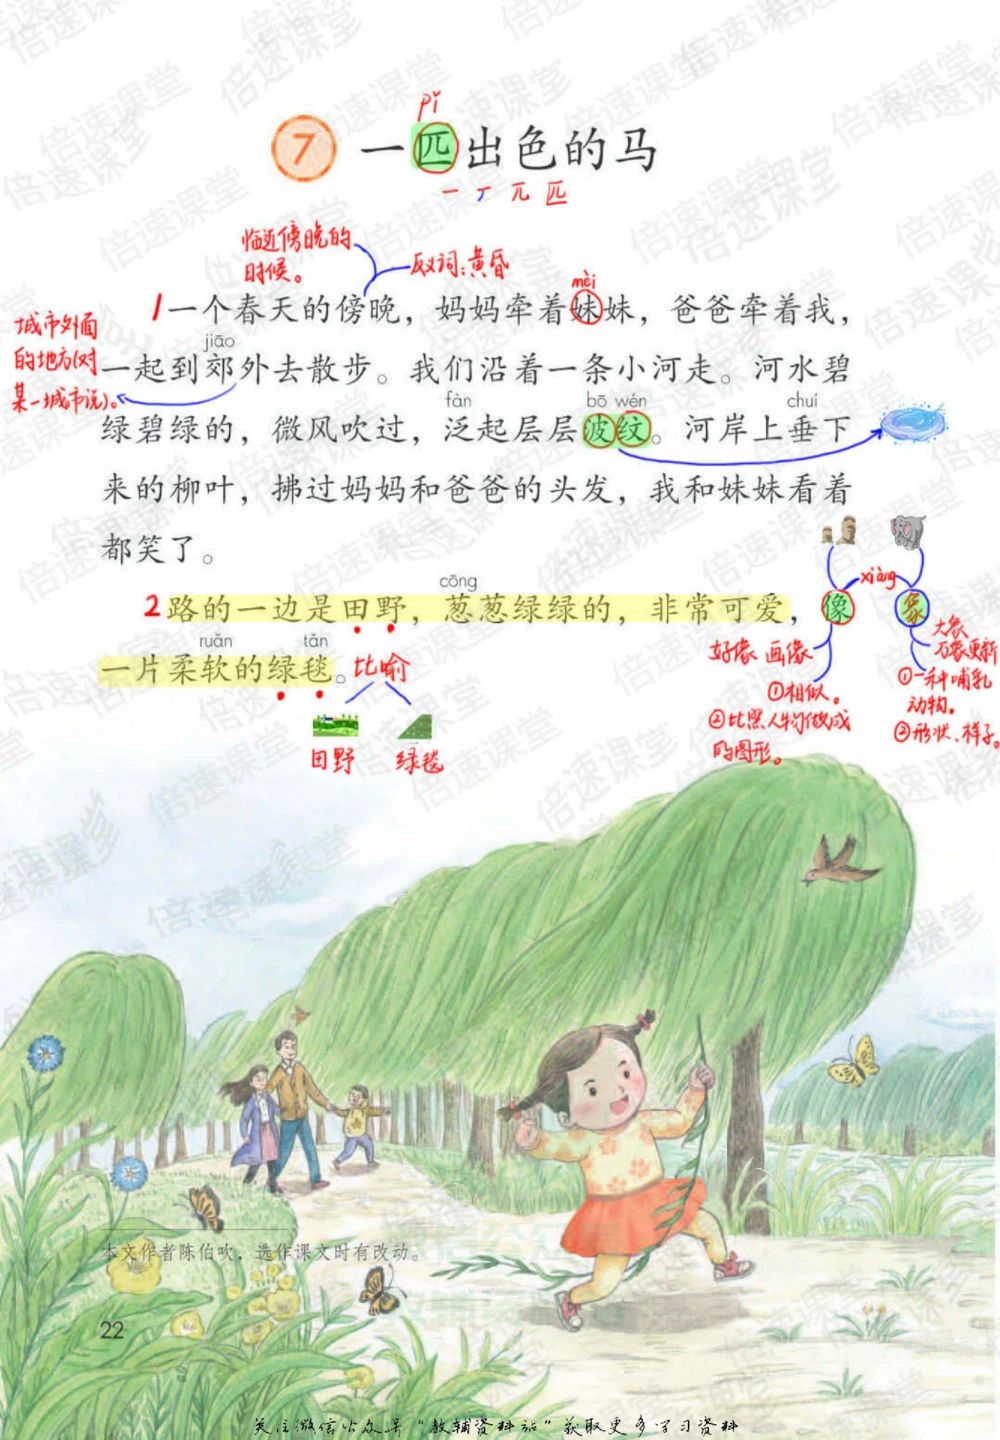 pǐ
7 一匹出色的马
一 丆 兀 匹
临近傍晚的
时候。
反义词:黄昏
mèi
1一个春天的傍晚，妈妈牵着妹妹，爸爸牵着我，
城市外面
的地方(对
某一城市说)。
jiāo
一起到郊外去散步。我们沿着一条小河走。河水碧
fàn bō wén chuí
绿碧绿的，微风吹过，泛起层层波纹。河岸上垂下
来的柳叶，拂过妈妈和爸爸的头发，我和妹妹看着
都笑了。
xiàng
cōng
2路的一边是田野，葱葱绿绿的，非常可爱，像象
ruǎn tǎn
一片柔软的绿毯。比喻
田野 绿毯
好像 画像
①相似。
②比照人物做成
的图形。
大象
万象更新
①一种哺乳
动物。
②形状、样子。
本文作者陈伯吹，选作课文时有改动。
22
关注微信公众号“教辅资料站”获取更多学习资料
倍速课堂